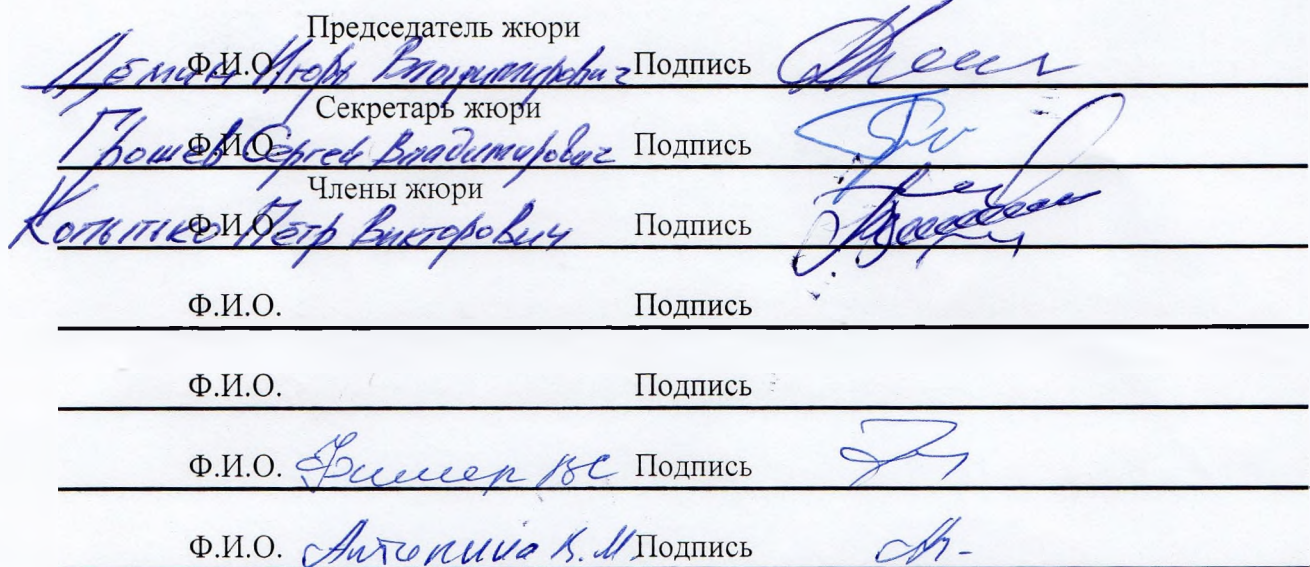 Председатель жюри
Ф.И.О. Дёмин Игорь Владимирович Подпись
Секретарь жюри
Ф.И.О. Сергей Владимирович Подпись
Члены жюри
Ф.И.О. Копытко Пётр Викторович Подпись
Ф.И.О. Подпись
Ф.И.О. Подпись
Ф.И.О. ВС Подпись
Ф.И.О. Антонина В.М. Подпись